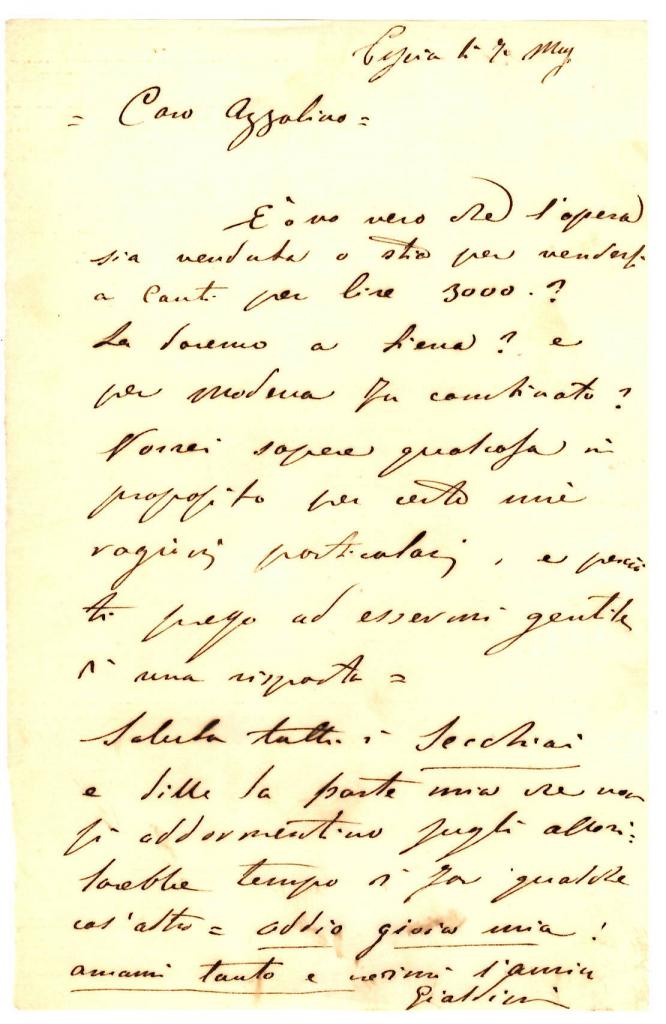 li 7. Mag
= Caro Azzolino =
È o no vero che l'opera
sia venduta o stia per vendersi
a Canti per lire 3000. ?
La daremo a Siena ? e
per Modena fu combinato ?
Vorrei sapere qualcosa in
proposito per certe mie
ragioni particolari, e perciò
ti prego ad essermi gentile
d'una risposta =
Saluta tutti i Secchiai
e dille da parte mia che non
si addormentino sugli allori:
sarebbe tempo di far qualche
cos'altro = addio gioia mia !
amami tanto e credimi l'amico
Gialdini